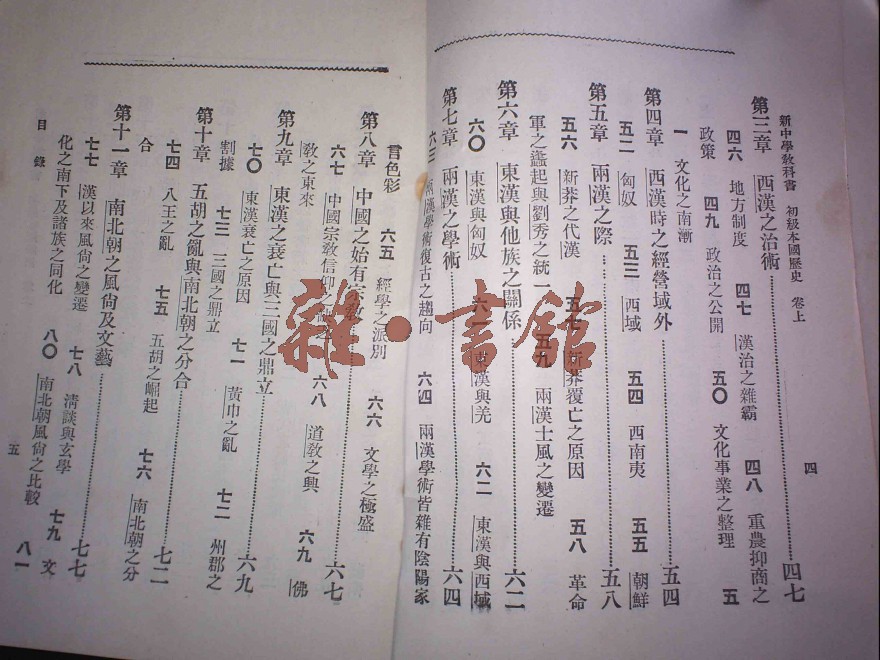 新中學教科書　初級本國歷史　卷上
四
第三章　西漢之治術 四七
四六　地方制度　四七　漢治之雜霸　四八　重農抑商之
政策　四九　政治之公開　五〇　文化事業之整理　五
一　文化之南漸
第四章　西漢時之經營域外 五四
五二　匈奴　五三　西域　五四　西南夷　五五　朝鮮
第五章　兩漢之際 五八
五六　新莽之代漢　五七　新莽覆亡之原因　五八　革命
軍之蠭起與劉秀之統一　五九　兩漢士風之變遷
第六章　東漢與他族之關係 六二
六〇　東漢與匈奴　六一　東漢與羌　六二　東漢與西域
第七章　兩漢之學術 六四
六三　兩漢學術復古之趨向　六四　兩漢學術皆雜有陰陽家
言色彩　六五　經學之派別　六六　文學之極盛
第八章　中國之始有宗教 六七
六七　中國宗教信仰之　六八　道教之興　六九　佛
教之東來
第九章　東漢之衰亡與三國之鼎立 六九
七〇　東漢衰亡之原因　七一　黃巾之亂　七二　州郡之
割據　七三　三國之鼎立
第十章　五胡之亂與南北朝之分合 七二
七四　八王之亂　七五　五胡之崛起　七六　南北朝之分
合
第十一章　南北朝之風尙及文藝 七七
七七　漢以來風尙之變遷　七八　淸談與玄學　七九　文
化之南下及諸族之同化　八〇　南北朝風尙之比較　八一
目錄
五
雜·書館